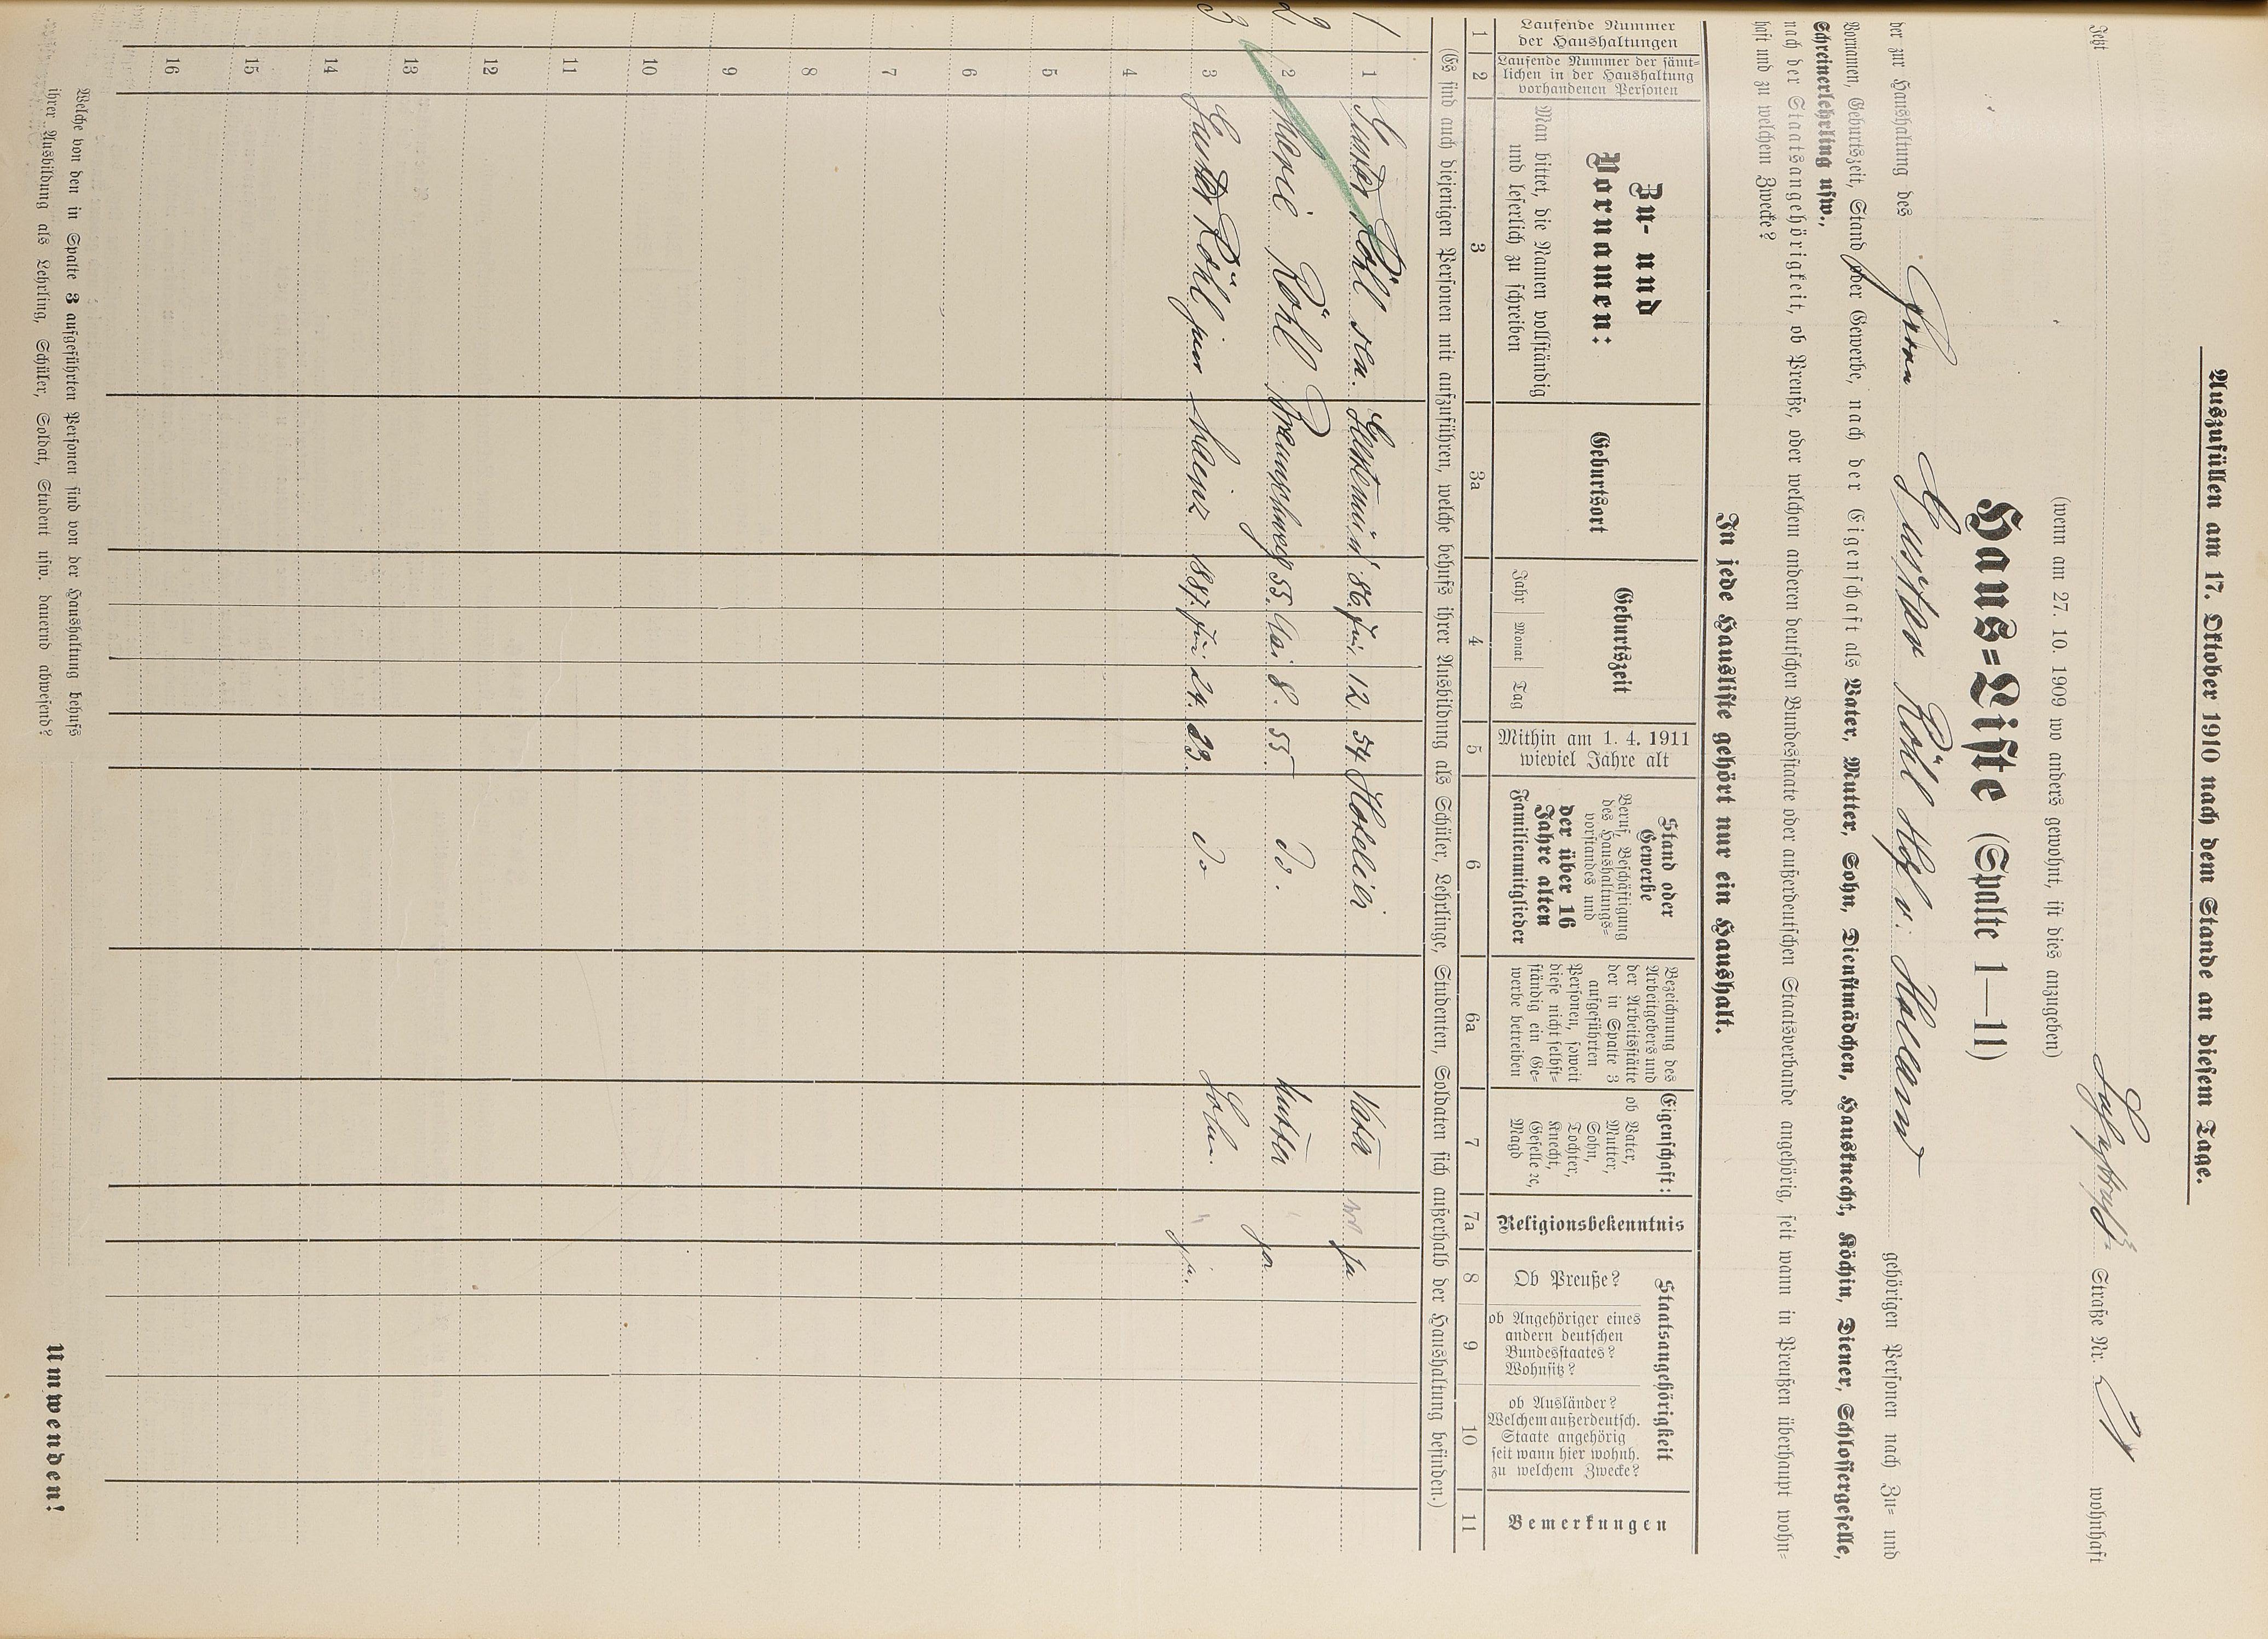 Auszufüllen am 17. Oktober 1910 nach dem Stande an diesem Tage.
Jetzt Straße Nr. wohnhaft
(wenn am 27. 10. 1909 wo anders gewohnt, ist dies anzugeben)
Haus=Liste (Spalte 1—11)
der zur Haushaltung des Herrn Gustav Röhl Hof v. Holland gehörigen Personen nach Zu= und
Vornamen, Geburtszeit, Stand oder Gewerbe, nach der Eigenschaft als Vater, Mutter, Sohn, Dienstmädchen, Hausknecht, Köchin, Diener, Schlossergeselle,
Schreinerlehrling usw.,
nach der Staatsangehörigkeit, ob Preuße, oder welchen anderen deutschen Bundesstaate oder außerdeutschen Staatsverbande angehörig, seit wann in Preußen überhaupt wohn=
haft und zu welchem Zwecke?
In jede Hausliste gehört nur ein Haushalt.
Laufende Nummer
der Haushaltungen
Laufende Nummer der sämt=
lichen in der Haushaltung
vorhandenen Personen
Zu- und
Vornamen:
Man bittet, die Namen vollständig
und leserlich zu schreiben
Geburtsort
Geburtszeit
Jahr Monat Tag
Mithin am 1. 4. 1911
wieviel Jahre alt
Stand oder
Gewerbe
Beruf, Beschäftigung
des Haushaltungs=
vorstandes und
der über 16
Jahre alten
Familienmitglieder
Bezeichnung des
Arbeitgebers und
der Arbeitsstätte
der in Spalte 3
aufgeführten
Personen, soweit
diese nicht selbst=
ständig ein Ge=
werbe betreiben
Eigenschaft:
ob Vater,
Mutter,
Sohn,
Tochter,
Knecht,
Geselle ꝛc,
Magd
Religionsbekenntnis
Staatsangehörigkeit
Ob Preuße?
ob Angehöriger eines
andern deutschen
Bundesstaates?
Wohnsitz?
ob Ausländer?
Welchem außerdeutsch.
Staate angehörig
seit wann hier wohnh.
zu welchem Zwecke?
Bemerkungen
1 2 3 3a 4 5 6 6a 7 7a 8 9 10 11
(Es sind auch diejenigen Personen mit aufzuführen, welche behufs ihrer Ausbildung als Schüler, Lehrlinge, Studenten, Soldaten sich außerhalb der Haushaltung befinden.)
1 1 Gustav Röhl sen. 56. 12. 54 Hotelier Vater ja
2 2 Marie Röhl Braunschweig 55. Mai 8. 55 do. Mutter ja
3 3 Gustav Röhl jun Mainz 187. 24. 23. do Sohn. ja.
4
5
6
7
8
9
10
11
12
13
14
15
16
Welche von den in Spalte 3 aufgeführten Personen sind von der Haushaltung behufs
ihrer Ausbildung als Lehrling, Schüler, Soldat, Student usw. dauernd abwesend?
Umwenden!